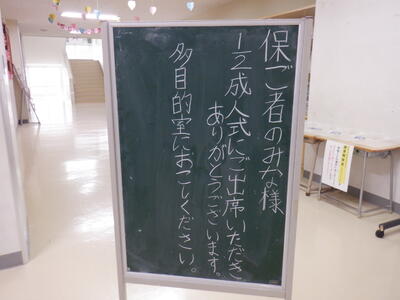 保ご者のみな様
1/2成人式にご出席いただき
ありがとうございます。
多目的室におこしください。